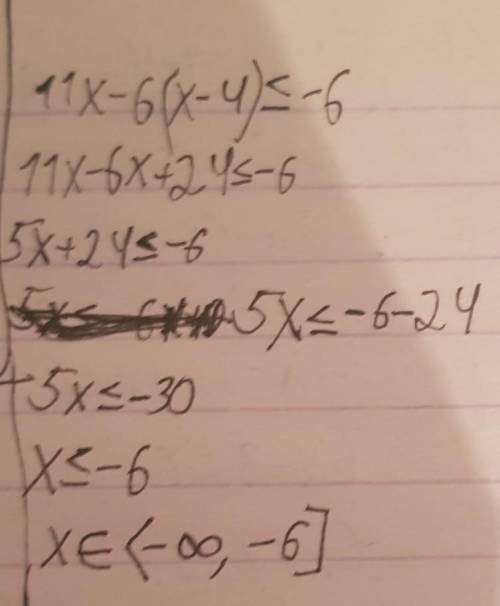 11x-6(x-4)≤-6
11x-6x+24≤-6
5x+24≤-6
5x≤-6-24
+5x≤-30
x≤-6
x∈(-∞,-6]